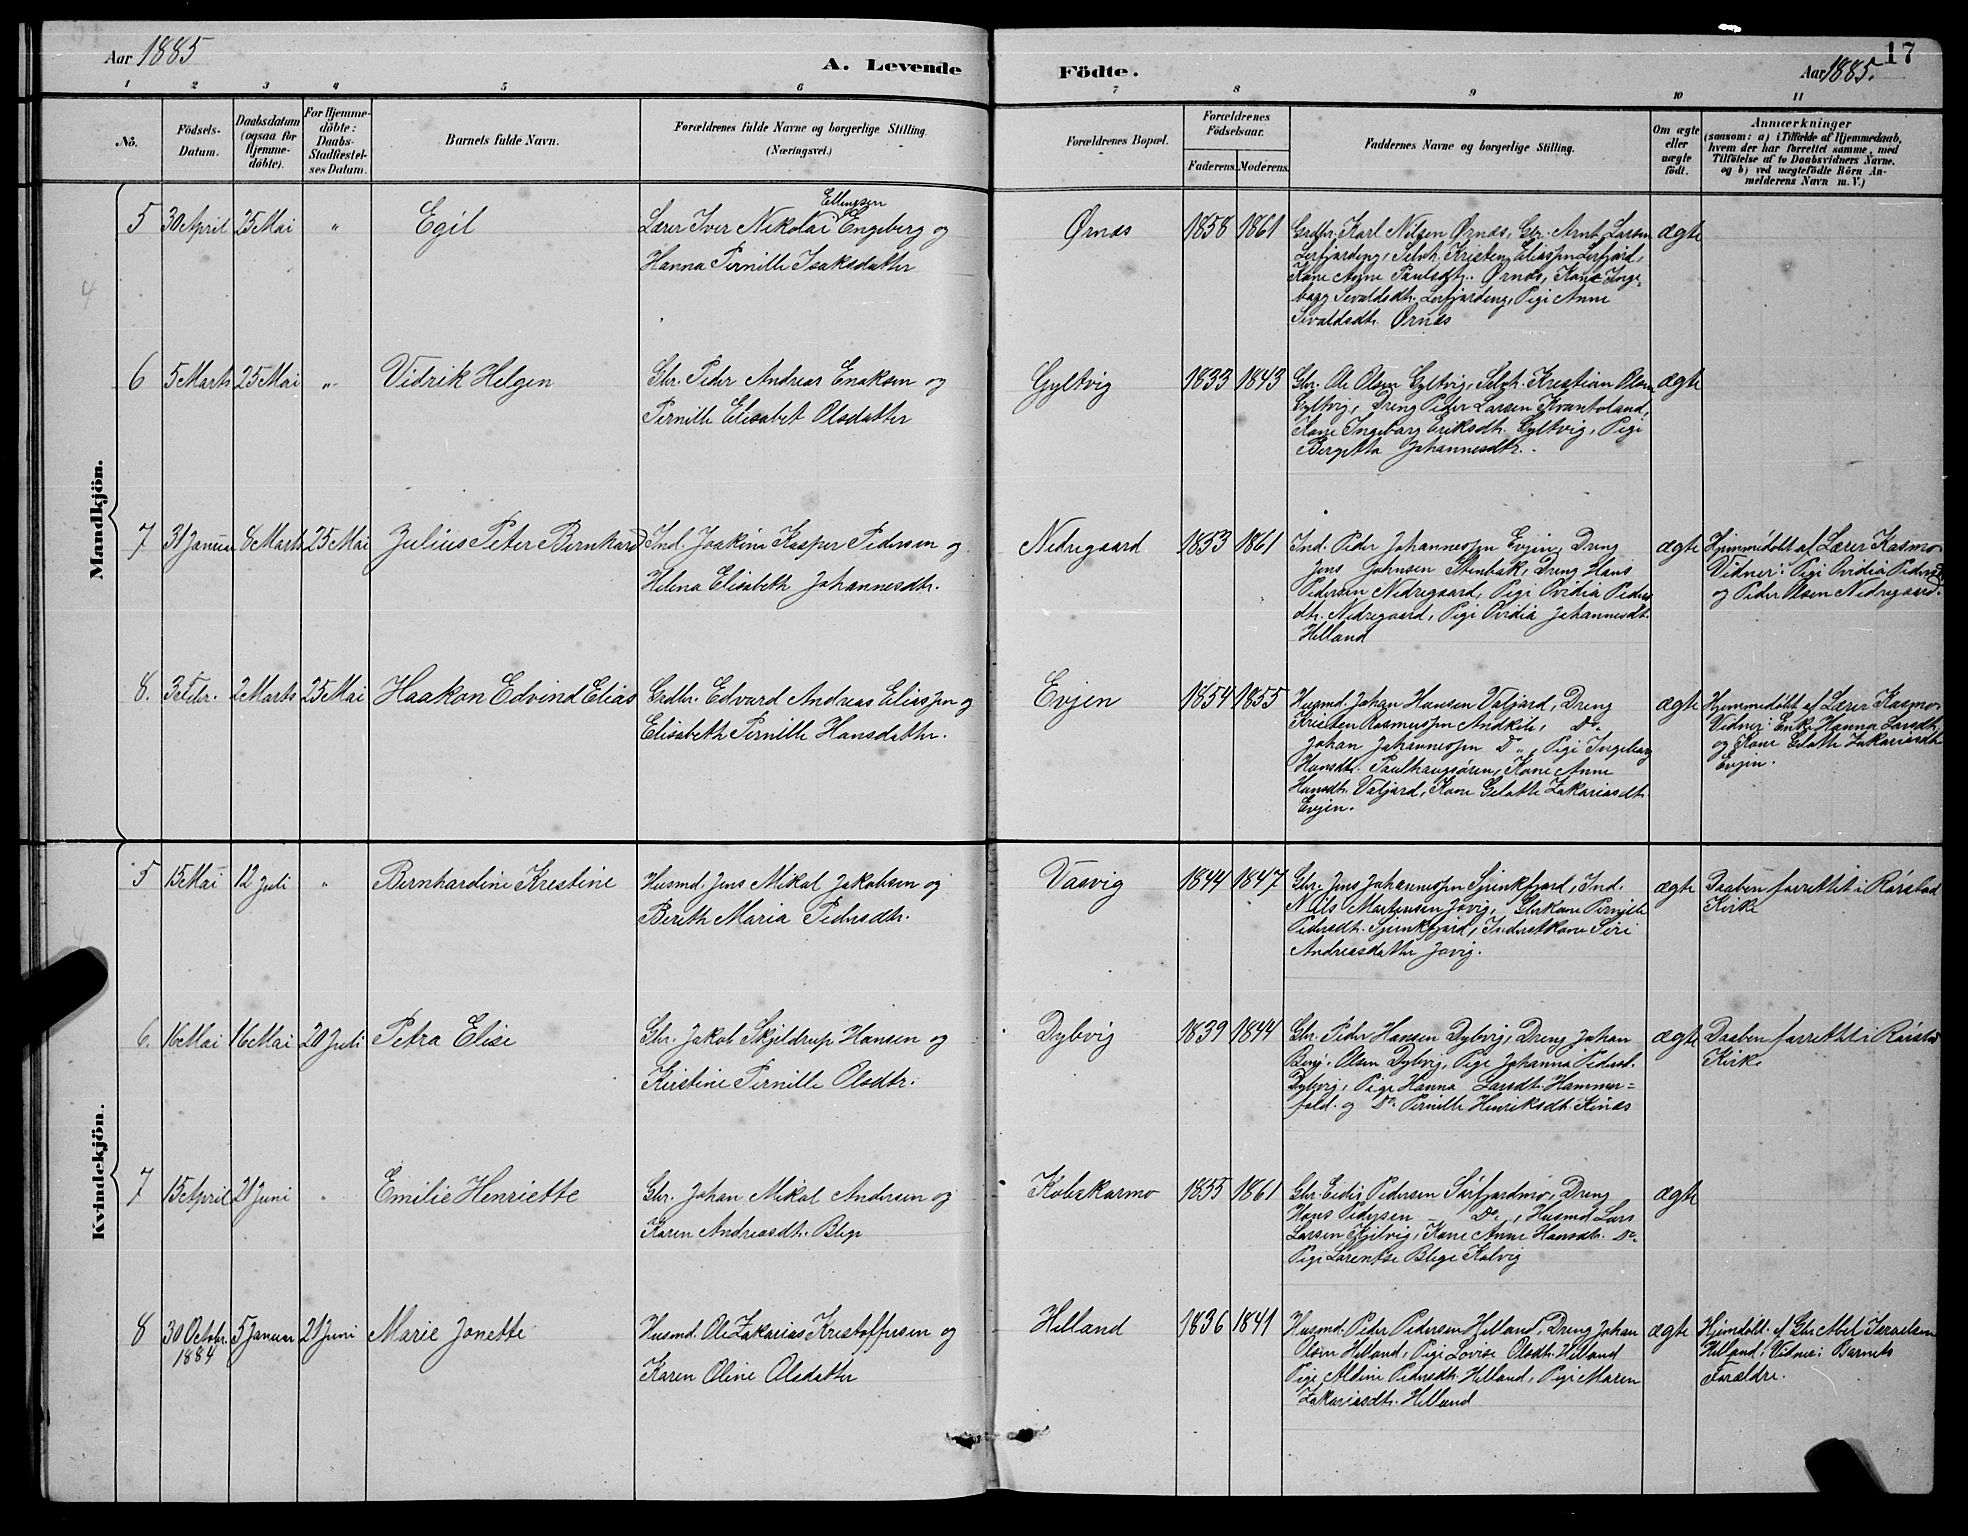 Aar 1885
A. Levende
Födte.
Aar 1885.
17
1 2 3 4 5 6 7 8 9 10 11
Nô.
Födsels-
Datum.
Daabsdatum
(ogsaa for
Hjemme-
döbte).
For Hjemme-
döbte:
Daabs-
Stadfæstel-
ses Datum.
Barnets fulde Navn.
Forældrenes fulde Navne og borgerlige Stilling.
(Næringsvei.)
Forældrenes Bopæl.
Forældrenes
Födselsaar.
Faderens. Moderens.
Faddernes Navne og borgerlige Stilling.
Om ægte
eller
uægte
födt.
Anmærkninger
(saasom: a) i Tilfælde af Hjemmedaab,
hvem der har forrettet samme, med
Tilföielse af to Daabsvidners Navne,
og b) ved uægtefödte Börn An-
melderens Navn m. V.)
Mandkjön.
4
5 30 April 25 Mai " Egil
Ellingsen
Lærer Iver Nikolai Engeberg og
Hanna Pernille Isaksdatter
Ørnæs 1858 1861
Grdbr. Karl Nilsen Ørnæs, Gbr. Arnt Larsen
Lerfjording, Selvh. Kristen Eliassen Lerfjord,
Kone Anne Paulsdtr. Ørnæs, Kone Inge-
borg Sivaldsdtr. Lerfjording, Pige Anne
Sivaldsdtr. Ørnæs
ægte
6 5 Marts 25 Mai " Vidrik Helgen
Gbr. Peder Andreas Enoksen og
Pernille Elisabet Olsdatter
Gyltvig 1833 1843
Gbr. Ole Olsen Gyltvig, Selvh. Kristian Olsen
Gyltvig, Dreng Peder Larsen Kvantoland,
Kone Ingeborg Eriksdtr. Gyltvig, Pige
Bergitta Johannesdtr.
ægte
7 31 Januar 8 Marts 25 Mai Julius Peter Bernhard
Ind. Joakim Kasper Pedersen og
Helena Elisabeth Johannesdtr.
Nedregaard 1853 1861
Ind. Peder Johannessen Evjen, Dreng
Jens Johnsen Stenbak, Dreng Hans
Pedersen Nedregaard, Pige Ovidia Peders
dtr. Nedregaard, Pige Ovidia Johannesdtr.
Helland
ægte
Hjemmedöbt af Lærer Kasmo
Vidner: Pige Ovidia Pedersd.
og Peder Olsen Nedregaard.
8. 3 Febr. 2 Marts 25 Mai Haakon Edvind Elias
Grdbr. Edvard Andreas Eliassen og
Elisabeth Pernille Hansdatter.
Evjen 1854 1855
Husmd. Johan Hansen Valjord, Dreng
Kristen Rasmussen Andkile, Do.
Johan Johannessen Do., Pige Ingeborg
Hansdtr. Paulhaugsören, Kone Anne
Hansdtr. Valjord, Kone Gelatte Zakariasdtr.
Evjen.
ægte
Hjemmedöbt af Lærer Kasmo
Vidner: Enke Hanna Larsdtr.
og Kone Gelatte Zakariasdtr
Evjen.
Kvindekjön.
5 15 Mai 12 Juli " Bernhardine Kristine
Husmd. Jens Mikal Jakobsen og
Berith Maria Pedersdtr.
Vasvig 1844 1847
Gbr. Jens Johannessen Sjunkfjord, Ind.
Nils Martinsen Jovig, Gbrkone Pernille
Pedersdtr. Sjunkfjord, Inderstkone Siri
Andreasdatter Jovig.
ægte
Daaben forrettet i Rörstad
Kirke
6. 16 Mai 16 Mai 20 Juli Petra Elise
Gbr. Jakob Skjeldrup Hansen og
Kirstine Pernille Olsdtr.
Dybvig 1839 1844
Gbr. Peder Hansen Dybvig, Dreng Johan
Benj. Olsen Dybvig, Pige Johanna Pedersd.
Dybvig, Pige Hanna Larsdtr. Hammer=
fald. og Do. Pernille Henriksdtr. Kines
ægte
Daaben forrettet i Rörstad
Kirke
7 15 April 21 Juni " Emilie Henriette
Gbr. Johan Mikal Andersen og
Karen Andreasdtr. Blige
Kobskarmo 1855 1861
Gbr. Eedis Pedersen Sörfjordmo, Dreng
Hans Pedersen Do., Husmd. Lars
Larsen Kjelvig, Kone Anne Hansdtr. Do.
Pige Larentse Blige Kalvig
ægte
8 30 Octobr. 5 Januar 21 Juni Marie Jonette
1884
Husmd. Ole Zakarias Kristoffersen og
Karen Oline Olsdatter
Helland 1836 1841
Husmd. Peder Pedersen Helland, Dreng Johan
Olsen Helland, Pige Lovise Olsdtr. Helland
Pige Aldine Pedersdtr. Helland, Pige Maren
Zakariasdtr. Helland
ægte
Hjemdöbt. af Gbr. Abel Israelsen
Helland, Vidner: Barnets
Forældre.